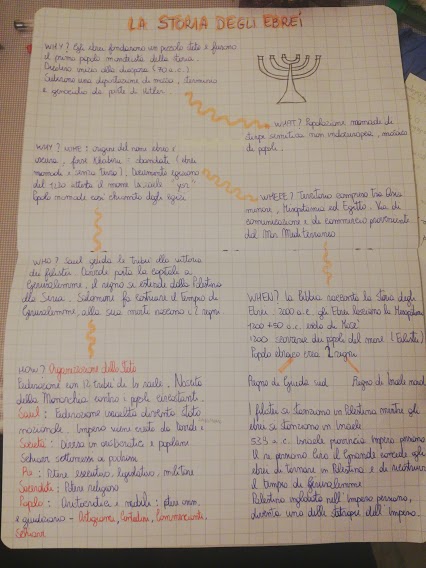 LA STORIA DEGLI EBREI
WHY? Gli ebrei fondarono un piccolo stato e furono
il primo popolo monoteista della storia.
Decisivo inizio alla diaspora (70 d.C.)
Subirono una deportazione di massa, sterminio
e genocidio da parte di Hitler.
WHAT? Popolazione nomade di
stirpe semitica non indoeuropea, mosaico
di popoli.
WHY? NOME: origine del nome ebreo è
oscura, forse Khabiru = abendati (ebrei
nomadi e senza terra). Documento egiziano
del 1230 attesta il nome Israele
Popolo nomade così chiamato dagli egizi
WHERE? Territorio compreso tra Asia
minore, Mesopotamia ed Egitto. Via di
comunicazione e di commercio proveniente
dal Mar Mediterraneo
WHO? Saul guida le tribù alla vittoria
dei filistei. Davide porta la capitale a
Gerusalemme, il regno si estende dalla Palestina
alla Siria. Salomone fa costruire il tempio di
Gerusalemme, alla sua morte nascono i 2 regni
WHEN? La Bibbia racconta la storia degli
Ebrei. 2000 a.C. gli Ebrei lasciano la Mesopotamia
1300 a.C. esodo di Mosè
1200 invasione dei popoli del mare (Filistei)
Popolo ebraico crea 2 regni
Regno di Giuda sud Regno di Israele nord
HOW? Organizzazione dello stato
Federazione con 12 tribù di Israele. Nascita
della Monarchia contro i popoli circostanti.
Saul: Federazione diventa stato
nazionale. Impero viene creato da Davide
Società: Divisa in aristocratici e popolani
Schiavi sottomessi ai padroni
Re: Potere esecutivo, legislativo, militare
Sacerdoti: Potere religioso
Popolo: Aristocratici e nobili:
e giudiziario - Artigiani, Contadini, Commercianti.
Schiavi
I filistei si stanziano in Palestina mentre gli
ebrei si stanziano in Israele
539 a.C. Israele provincia impero persiano
Il re persiano Ciro il Grande concede agli
ebrei di tornare in Palestina e di ricostruire
il tempio di Gerusalemme
Palestina inglobata nell'impero persiano,
diventa una delle satrapie dell'impero.